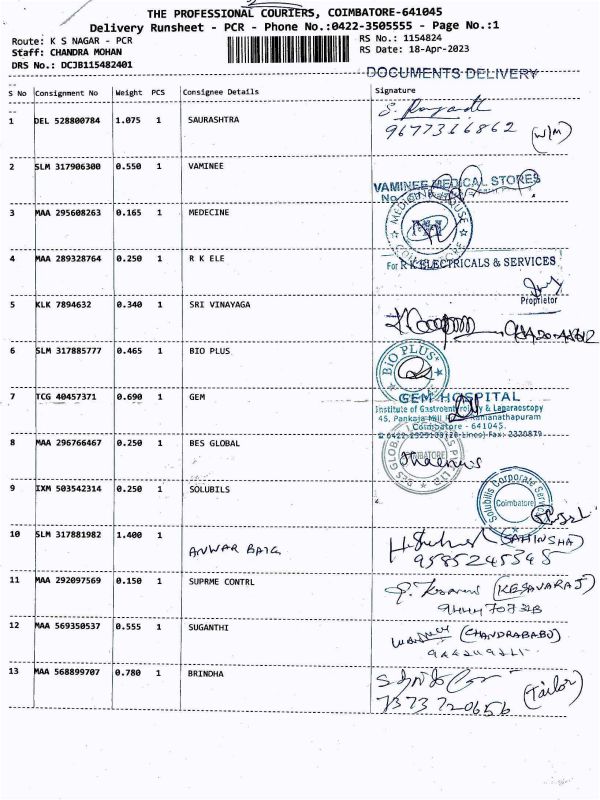 THE PROFESSIONAL COURIERS, COIMBATORE-641045
Delivery Runsheet - PCR - Phone No.:0422-3505555 - Page No.:1
Route: K S NAGAR - PCR
RS No.: 1154824
Staff: CHANDRA MOHAN
RS Date: 18-Apr-2023
DRS No.: DCJB115482401
DOCUMENTS DELIVERY
S No Consignment No Weight PCS Consignee Details Signature
1 DEL 528800784 1.075 1 SAURASHTRA
9677366862 (W/M)
2 SLM 317906300 0.550 1 VAMINEE
VAMINEE MEDICAL STORES
3 MAA 295608263 0.165 1 MEDECINE
MEDICINE HOUSE
4 MAA 289328764 0.250 1 R K ELE
For R K ELECTRICALS & SERVICES
Proprietor
5 KLK 7894632 0.340 1 SRI VINAYAGA
6 SLM 317885777 0.465 1 BIO PLUS
BIO PLUS
7 TCG 40457371 0.690 1 GEM
GEM HOSPITAL
Institute of Gastroenterology & Laparaoscopy
45, Pankaja Mill Ramanathapuram
Coimbatore - 641045.
8 MAA 296766467 0.250 1 BES GLOBAL
9 IXM 503542314 0.250 1 SOLUBILS
Solubilis Corporate Services
Coimbatore
10 SLM 317881982 1.400 1 ANWAR BAIG
(SAHINSHA)
9585245345
11 MAA 292097569 0.150 1 SUPRME CONTRL
(KESAVARAJ)
12 MAA 569350537 0.555 1 SUGANTHI
(CHANDRABABU)
13 MAA 568899707 0.780 1 BRINDHA
(Tailor)
7373720656